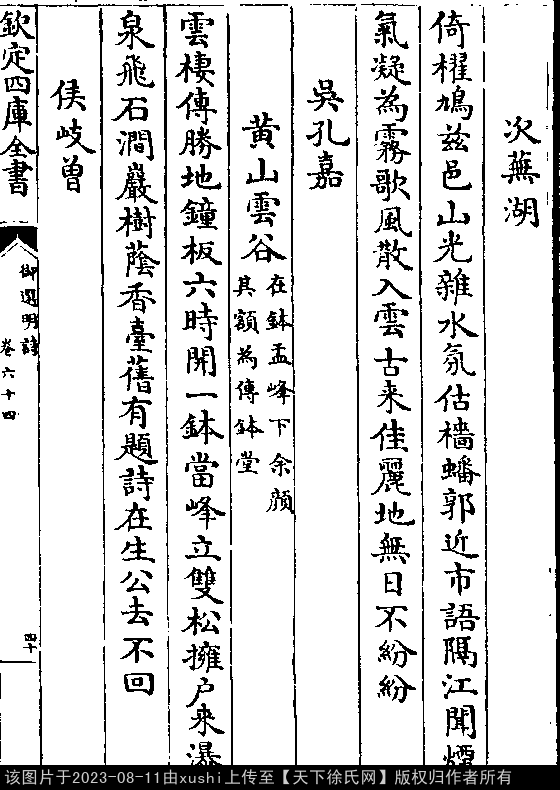 次蕪湖
倚櫂鳩兹邑山光雜水氛估檣蟠郭近市語隔江聞煙
氣凝為霧歌風散入雲古来佳麗地無日不紛紛
吳孔嘉
黄山雲谷
在鉢盂峰下余顔
其額為傳鉢堂
雲棲傳勝地鐘板六時開一鉢當峰立雙松擁户来瀑
泉飛石澗巖樹蔭香臺舊有題詩在生公去不回
侯岐曾
欽定四庫全書
御選明詩
卷六十四
四十
该图片于2023-08-11由xushi上传至【天下徐氏网】版权归作者所有